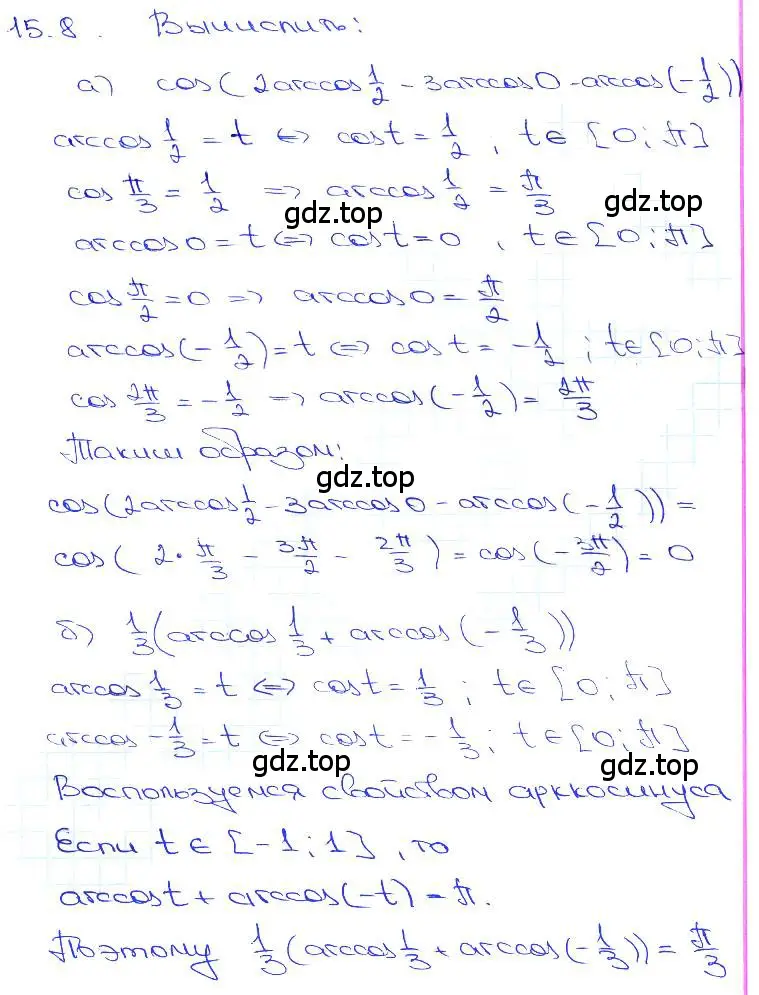 15.8. Вычислить:
а) cos(2arccos 1/2 - 3arccos0 - arccos(-1/2))
arccos 1/2 = t ⇔ cost = 1/2, t∈[0;π]
cos π/3 = 1/2 ⇒ arccos 1/2 = π/3
gdz.top
gdz.top
arccos0 = t ⇔ cost = 0, t∈[0;π]
cos π/2 = 0 ⇒ arccos0 = π/2
arccos(-1/2) = t ⇔ cost = -1/2; t∈[0;π]
cos 2π/3 = -1/2 ⇒ arccos(-1/2) = 2π/3
Таким образом:
gdz.top
cos(2arccos 1/2 - 3arccos0 - arccos(-1/2)) =
cos(2·π/3 - 3π/2 - 2π/3) = cos(-3π/2) = 0
б) 1/3(arccos 1/3 + arccos(-1/3))
arccos 1/3 = t ⇔ cost = 1/3; t∈[0;π]
arccos -1/3 = t ⇔ cost = -1/3; t∈[0;π]
gdz.top
gdz.top
Воспользуемся свойством арккосинуса
Если t∈[-1;1], то
arccost + arccos(-t) = π.
Поэтому 1/3(arccos 1/3 + arccos(-1/3)) = π/3